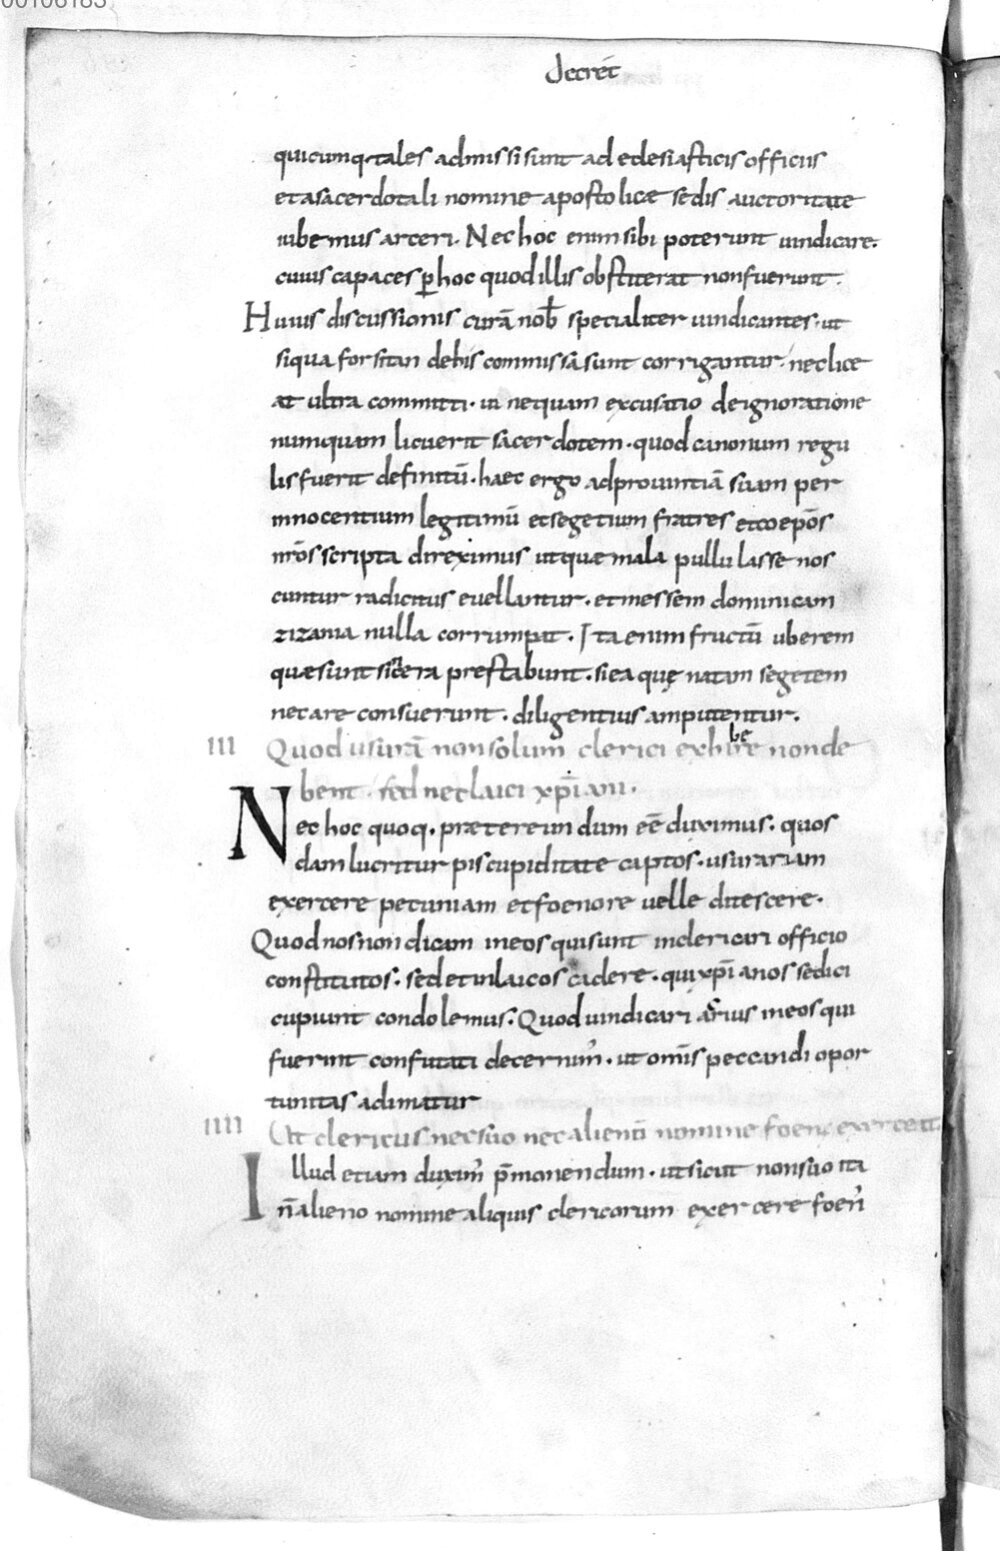 00106183
decret̄
quicumq; tales admissi sunt ad eclesiasticis officiis
et a sacerdotali nomine apostolicæ sedis auctoritate
iubemus arceri. Nec hoc enim sibi poterunt uindicare.
cuius capaces p̱ hoc quod illis obstiterat non fuerunt.
Huius discussionis curā nob̄ specialiter uindicantes. ut
siqua forsitan de his commissa sunt corrigantur. nec lice
at ultra committi. ui nequam excusatio de ignoratione
numquam licuerit sacerdotem. quod canonum regu
lis fuerit definitū. haec ergo ad prouintiā suam per
innocentium legitimū et segetium fratres et coep̄os
nr̄os scripta direximus ut quae mala pullulasse nos
cuntur radicitus euellantur. et messem dominicam
zizania nulla corrumpat. Ita enim fructū uberem
quae sunt sincera prestabunt. si ea quę natam segetem
necare consuerunt. diligentius amputentur.
III Quod usurā non solum clerici exhibere non de
bent. sed nec laici xp̄iani.
Nec hoc quoq. prætereundum eē duximus. quos
dam lucri turpis cupiditate captos. usurariam
exercere petuniam et foenore uelle ditescere.
Quod nos non dicam in eos qui sunt in clericari officio
constitutos. sed et in laicos cadere. qui xp̄ianos se dici
cupiunt condolemus. Quod uindicari acrius in eos qui
fuerint confutati decernim̄. ut omīs peccandi opor
tunitas adimatur
IIII Ut clericus nec suo nec alienō nomine foenę exerceat.
Illud etiam duxim̄ p̄monendum. ut sicut non suo ita
n̄ alieno nomine aliquis clericorum exercere foen̄